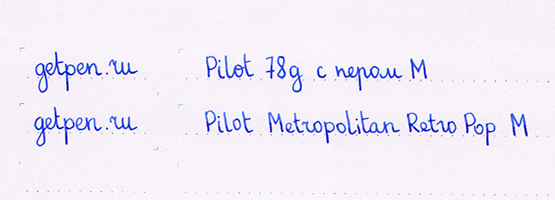 getpen.ru Pilot 78g с пером M
getpen.ru Pilot Metropolitan Retro Pop M